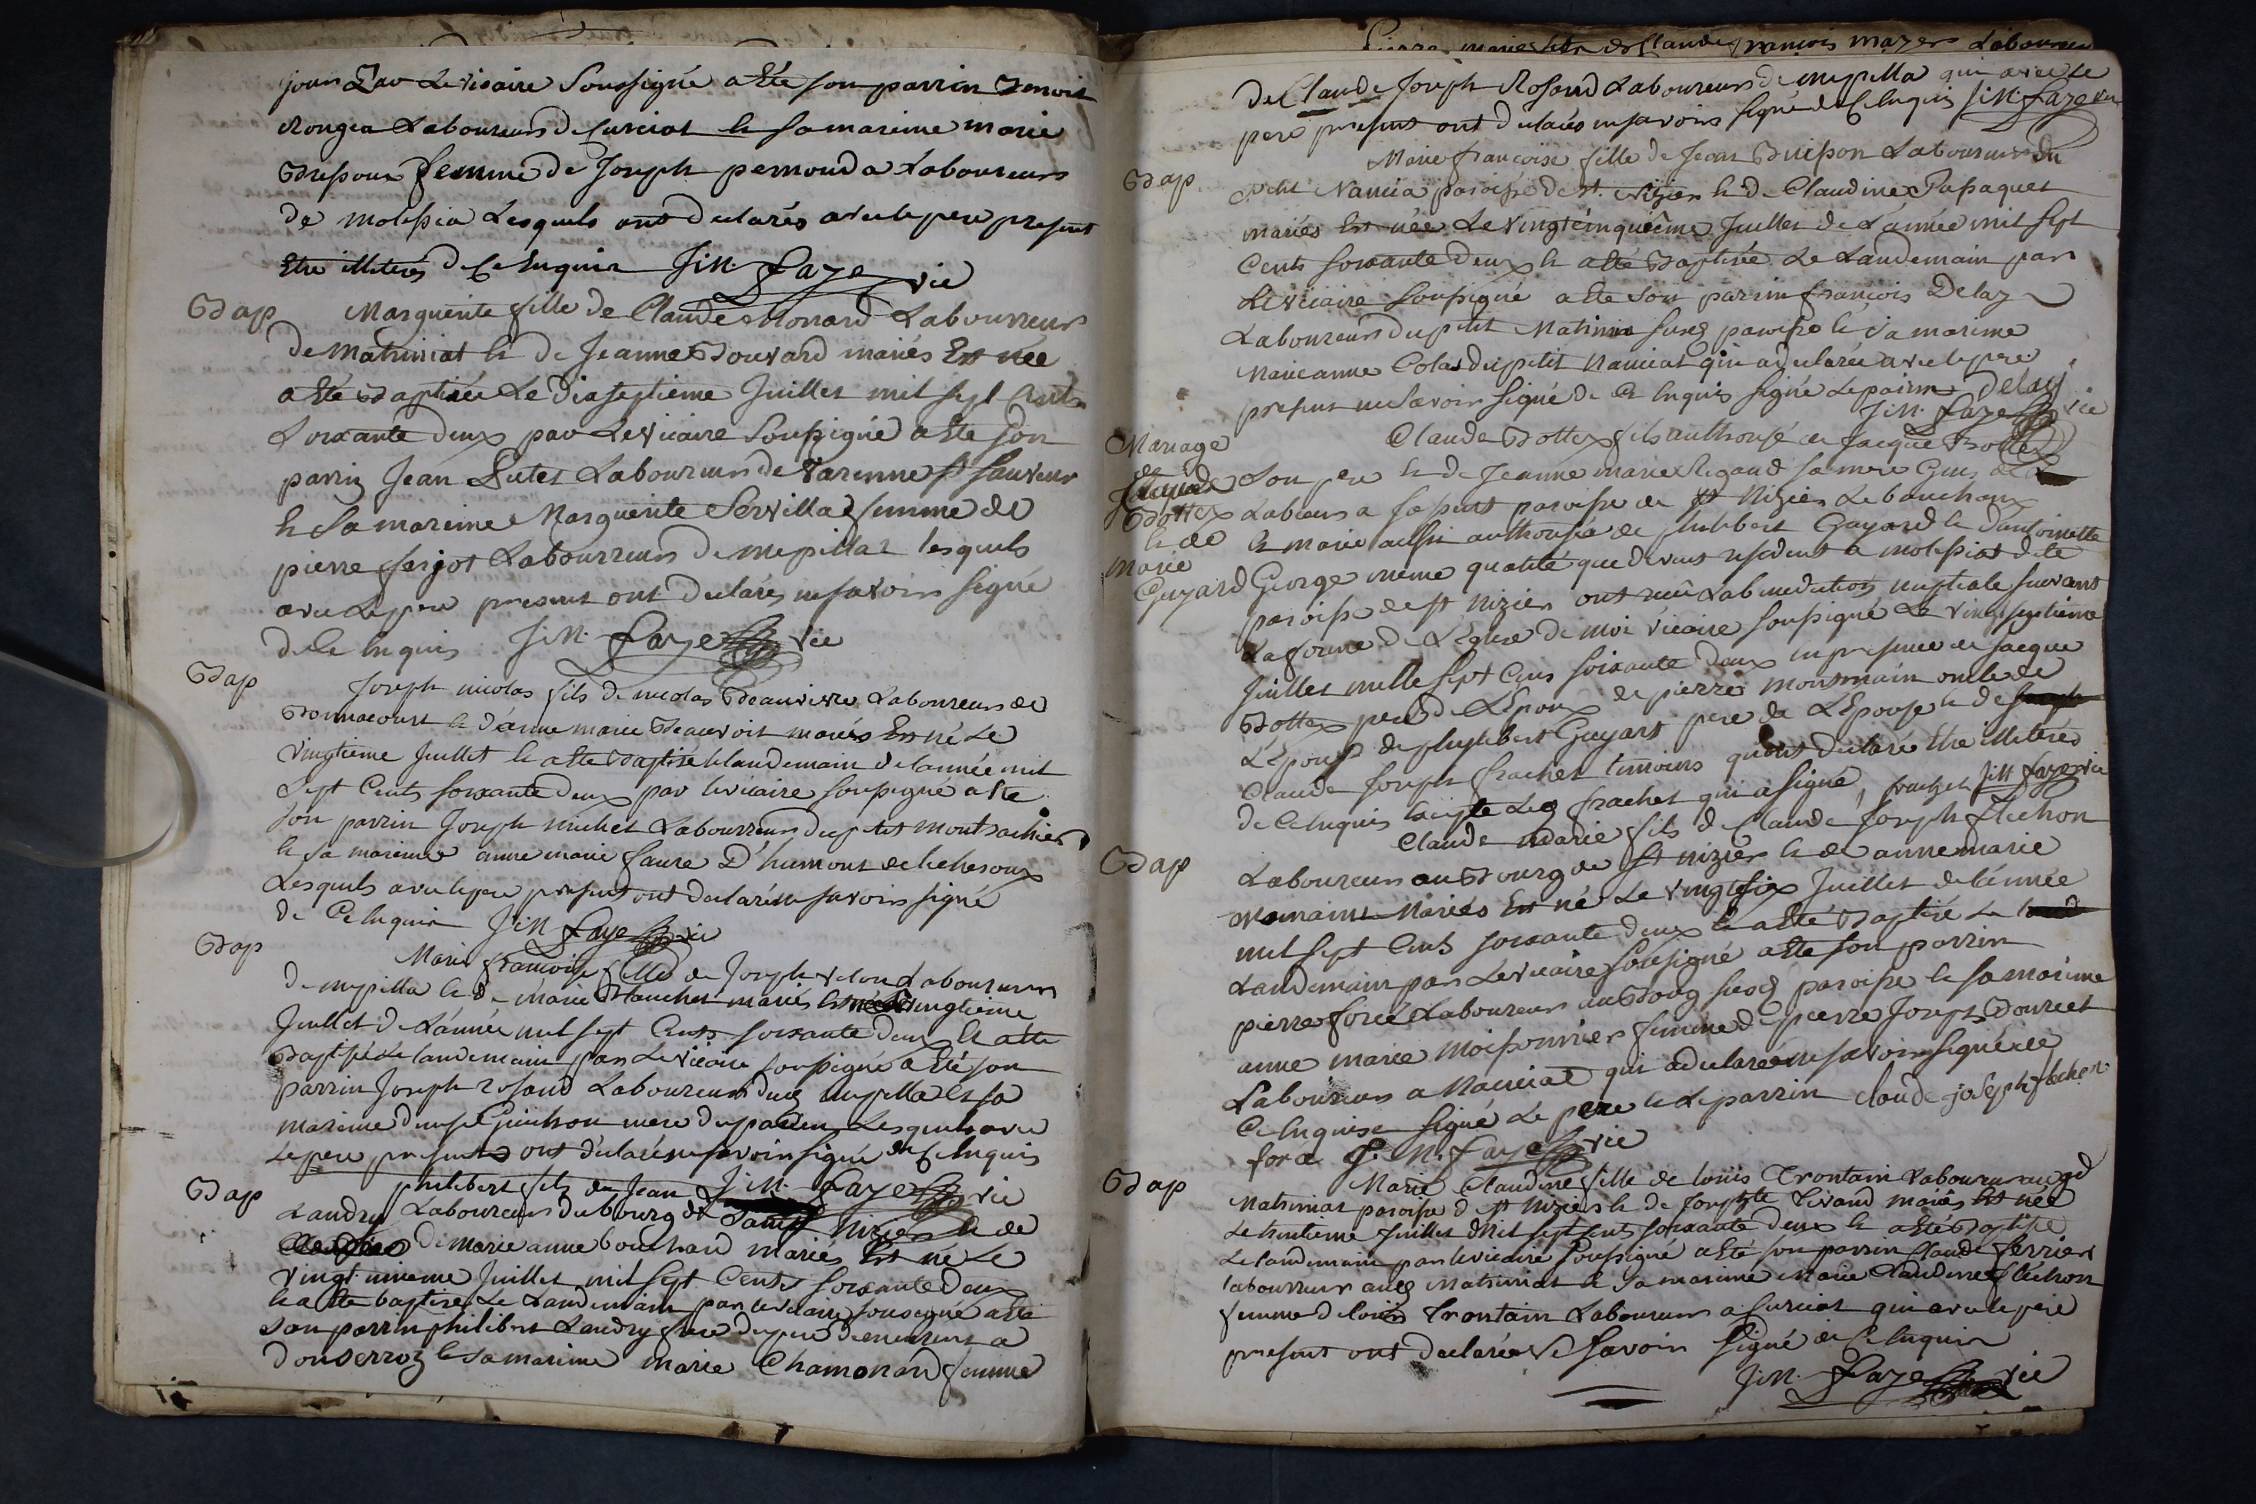 jour par Le vicaire Soussigné a été son parrin Benoit
Rongea Laboureur de Curciat & sa mareine marie
Bressoux femme de Joseph pernouda Laboureur
de molepia Lesquels ont déclarés avec le pere present
Etre illiterés de Ce Enquis J:M: Faye vic
Bap
Marguerite fille de Claude Monard Labourreur
de Matriniat & de Jeanne Bouvard mariés Est née
a été Baptisée Le dixseptieme Juillet mil sept Cents
Soixante deux par Le vicaire Soussigné a été Son
parrin Jean Putet Laboureur de Varenne st Sauveur
& Sa mareine Marguerite Servilla femme de
pierre farjot Labourreur de mepillat lesquels
avec Le pere present ont déclarés ne savoir signé
de Ce Enquis J:M: Faye vic
Bap
Joseph nicolas fils de nicolas Beauvivre Laboureur de
Bonnacourt & d'anne marie Beauvoit mariés Est né Le
vingtieme Juillet & a été Baptisé le landemain de l'année mil
Sept Cents soixante deux par le vicaire soussigné a été
son parrin Joseph michel Labourreur du petit montsachier
& sa mareine anne marie faure D'humont de
Lesquels avec le pere present ont declaré ne savoir signé
de Ce Enquis J:M Faye vic
Bap
Marie françoise fille de Joseph velon Laboureur
de mepilla & de marie Blanchet mariés Est née Le vingtieme
Juillet de L'année mil sept Cents soixante deux & a été
Baptisée Le landemain par Le vicaire soussigné a Eté son
parrin Joseph rosand Laboureur dud mepilla & sa
mareine denise Guichon mere du Lesquels avec
Le pere present ont déclarés ne savoir signé de Ce Enquis
Bap
philibert fils de Jean J:M: Faye vic
Landry Laboureur du bourg de Saint Nizier & de
de Marie anne bouchard mariés Est né Le
vingt unieme Juillet mil sept Cents soixante Deux
& a été baptisé Le Landemain par le vicaire sousigné a été
son parrin philibert Landry frere du pere demeurant a
domserroz & sa mareine marie Chamonard femme
pierre marie fils de Claude François mazer Laboureur
De Claude Joseph Rosand Laboureur de mepilla qui avec Le
pere present ont declarés ne savoir signé de Ce Enquis J:M: Faye vic
Bap
Marie françoise fille de Jean Buisson Laboureur du
petit Nancia paroisse de st. Nizier & de Claudine Passaquet
mariés Est née Le Vingtcinquiême Juillet de L'année mil sept
Cents soixante deux & a été Baptisée Le Landemain par
Le vicaire soussigné a été son parrin françois Delay
Laboureur du petit Matinia susd paroisse & sa mareine
Marieanne Colas du petit Nanciat qui a declarée avec le pere
present ne savoir signé de Ce Enquis signé Le parrin Delay
J:M: Faye vic
Mariage
de
Claude
Bottex
& de
Marie
Guyard
Claude Bottex fils authorisé de Jacque Bottex
Son pere & de Jeanne marie Rigaud sa mere Gens de
Labeurs a paroisse de st Nizier Le bouchoux
& marie aussi authorisée de philibert Guyard & d'antoinette
George même qualité que devant resident a molepiat dite
paroisse de st Nizier ont reçû La benediction nuptiale suivant
La forme de L'Eglise de moi vicaire soussigné Le vingt septieme
Juillet mille sept Cens soixante deux en presence de Jacque
Bottex pere de L'Epoux de pierre Montmain oncle de
L'Epoux de phylibert Guyart pere de L'Epouse & de
Claude Joseph frachet temoins qui ont declaré Etre illiterés
de Ce Enquis Excepté Led frachet qui a signé, frachet J:M Faye vic
Bap
Claude Marie fils de Claude Joseph Flichon
Laboureur au Bourg de st nizier & de anne marie
mariés Est né Le vingt six Juillet de l'année
mil sept Cents soixante deux & a Eté Baptisé Le
Landemain par Le vicaire soussigné a été son parrin
pierre foré Laboureur au Bourg susd paroisse & sa mareine
anne marie moissonnier femme de pierre Joseph Douvret
Laboureur a Nanciat qui a declarée ne savoir signé de
Ce Enquise signé Le pere & Le parrin claude joseph flechon
foré J. M. Faye vic
Bap
Marie Claudine fille de louis Trontain Laboureur au gd
Matrimat paroisse de st Nizier & de Josephte Tivand mariés Est née
Le trentieme Juillet Mil sept cents soixante deux & a été Baptisée
Le landemain par le vicaire soussigné a été son parrin Claude ferrier
labourreur aud Matrimat & sa mareine Marie Claudine Flichon
femme de louis Trontain Laboureur a Curciat qui avec le pere
present ont declarés ne savoir signé de Ce Enquis
J:M: Faye vic